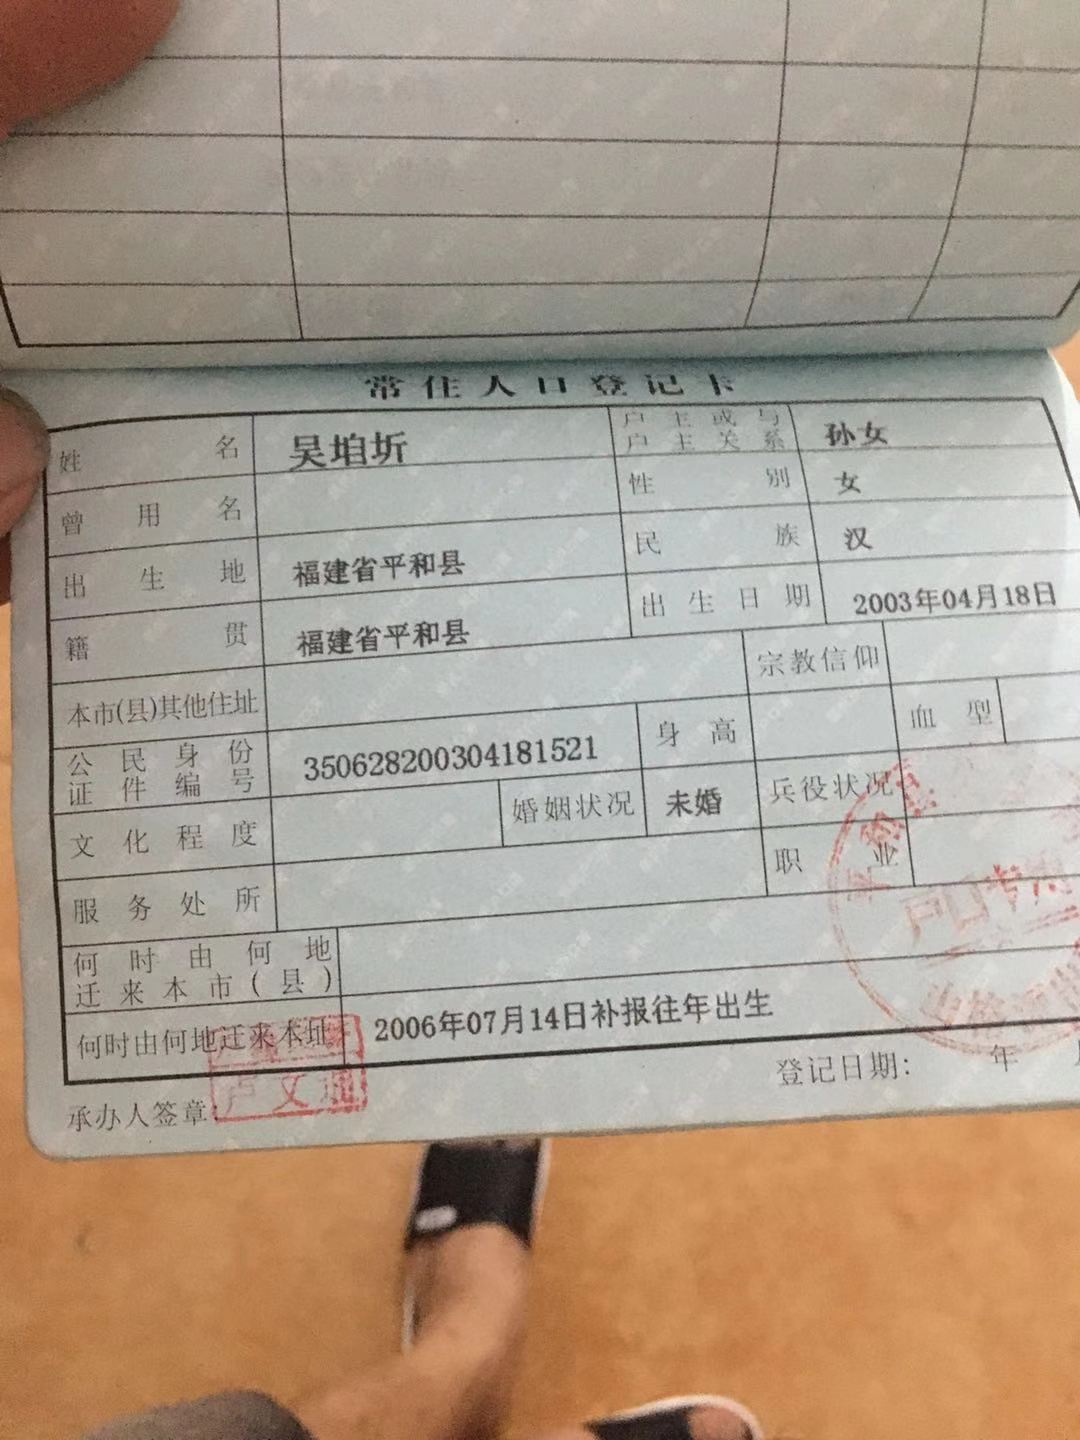 常住人口登记卡
姓名 吴垍圻 户主或与户主关系 孙女
曾用名 性别 女
出生地 福建省平和县 民族 汉
籍贯 福建省平和县 出生日期 2003年04月18日
本市(县)其他住址 宗教信仰
公民身份证件编号 350628200304181521 身高 血型
文化程度 婚姻状况 未婚 兵役状况
服务处所 职业
何时由何地迁来本市(县)
何时由何地迁来本址 2006年07月14日补报往年出生
户口专用
承办人签章: 卢文通 登记日期: 年